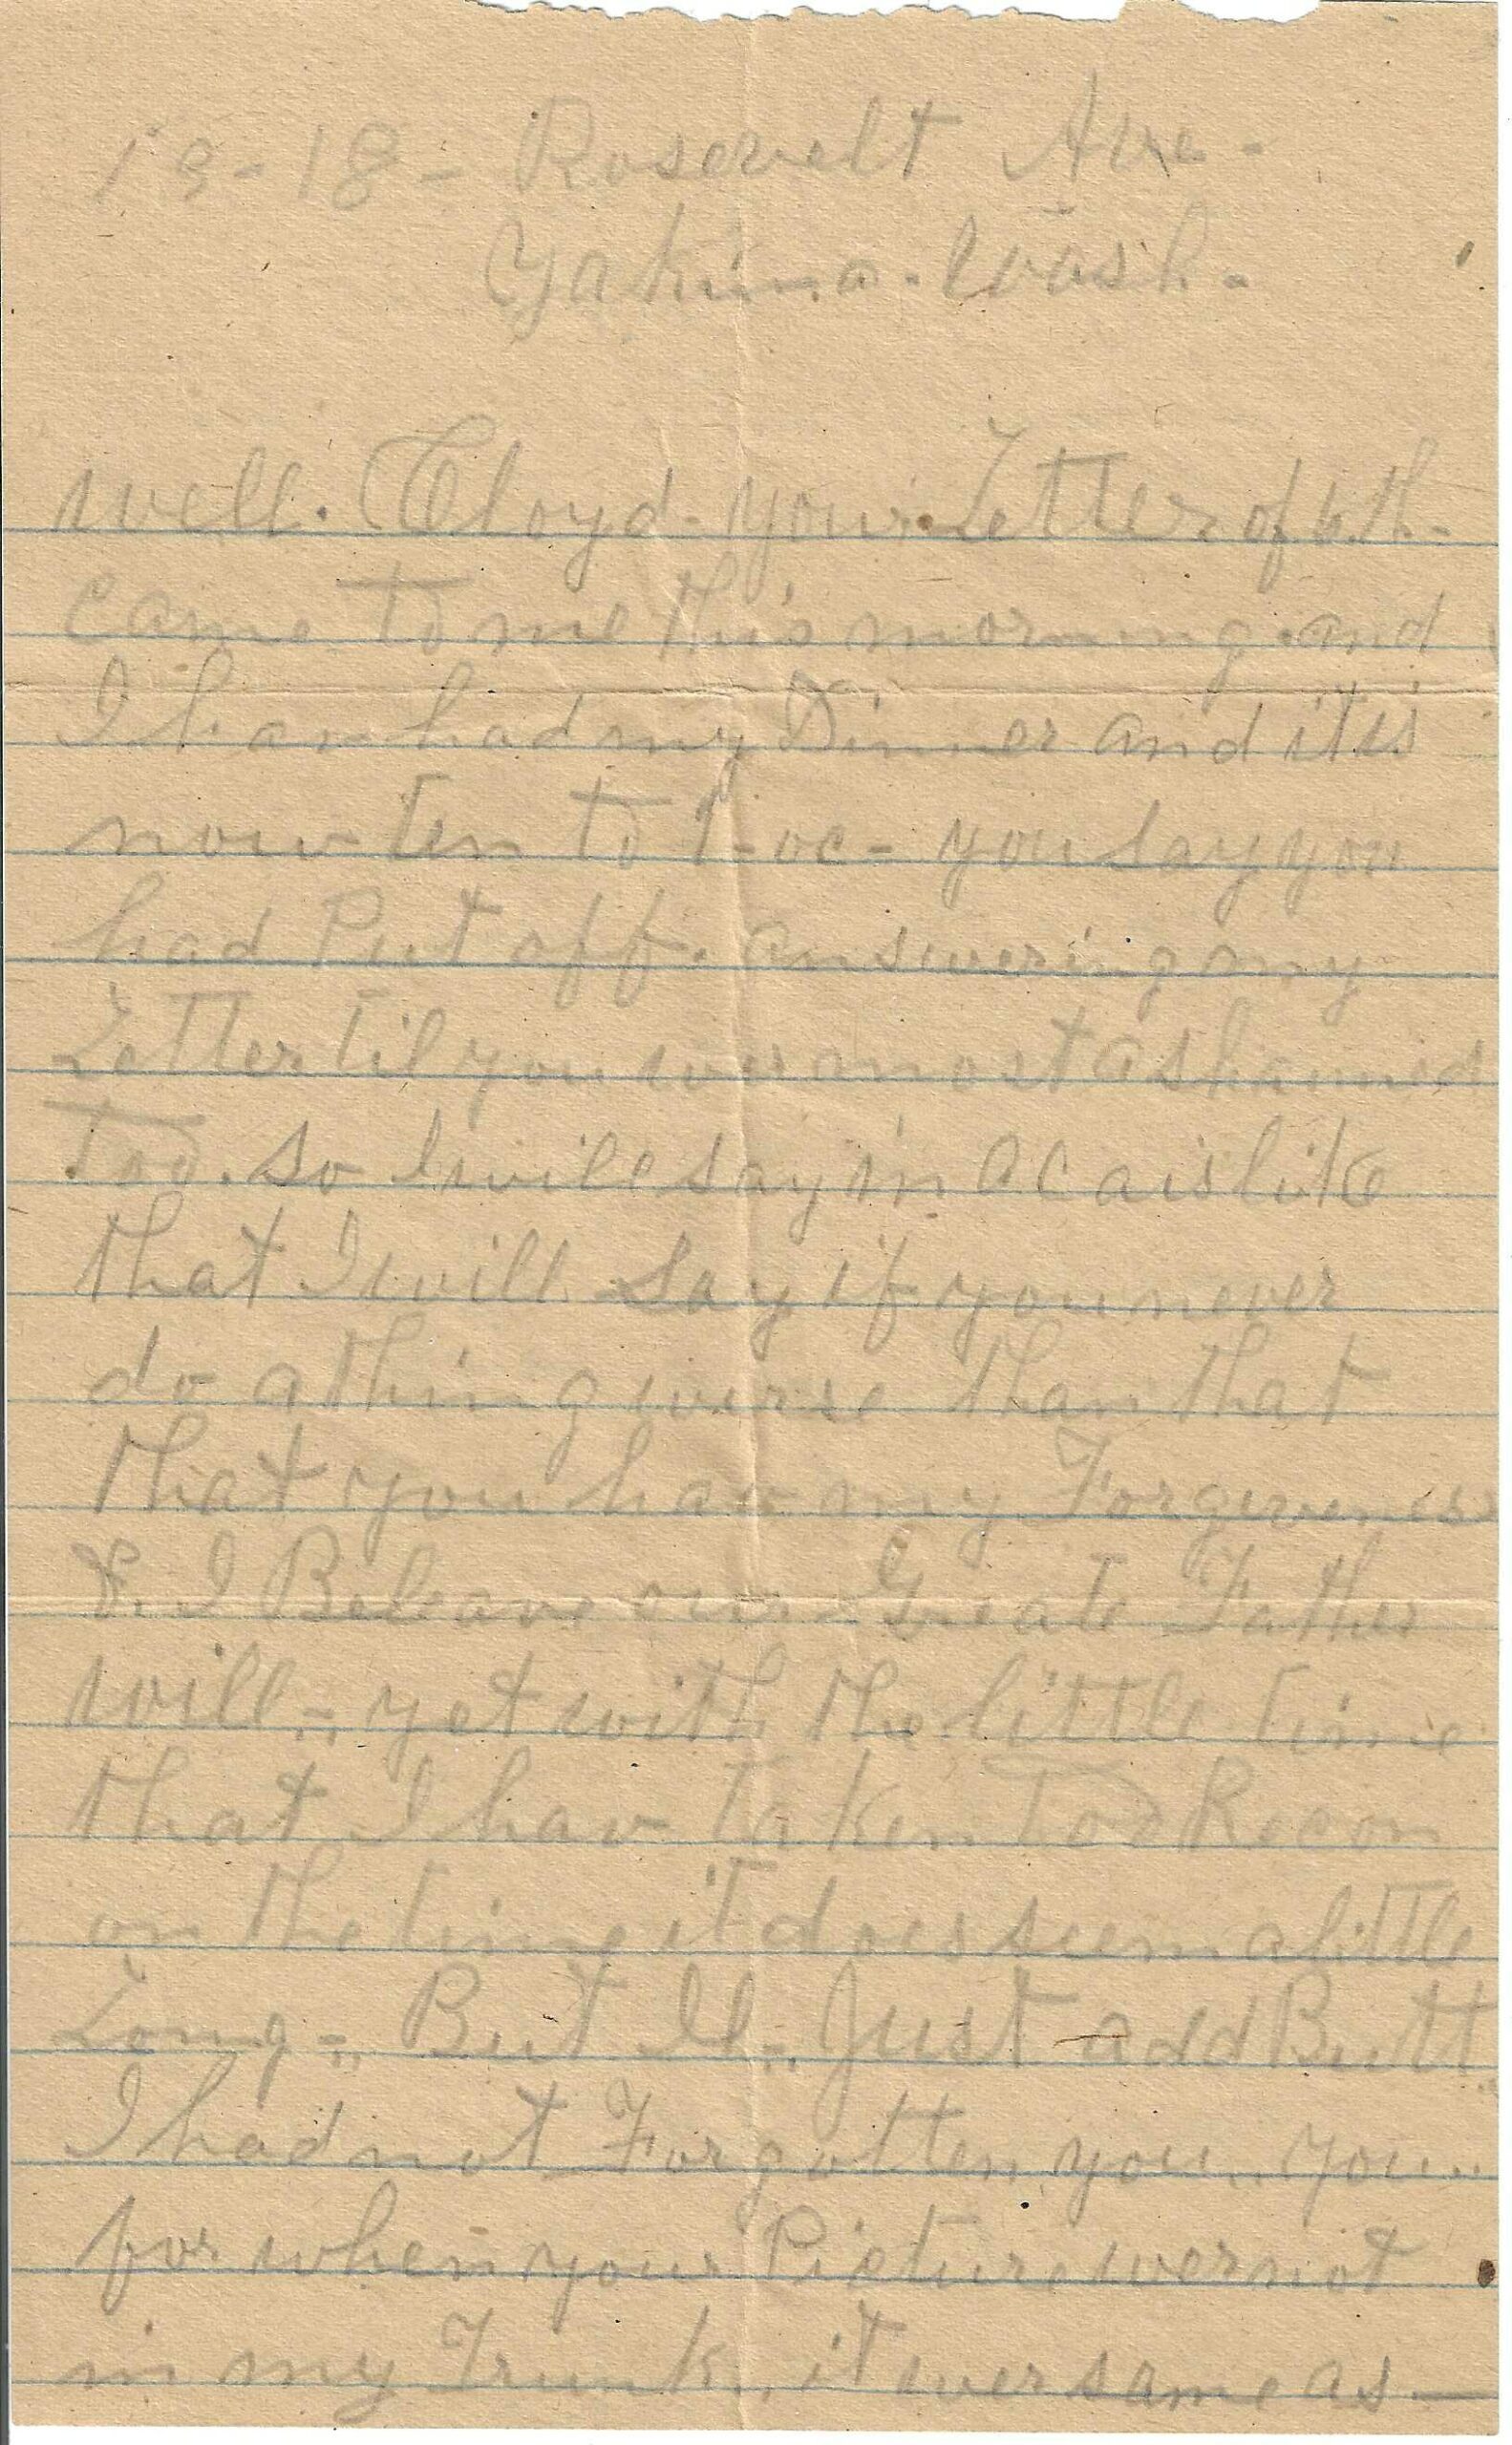 19-18- Rosevelt Ave-
Yakima. Wash.
well. Cloyd. your. Letter of 6.th-
came to me this morning. and
I hav had my Dinner and it is
now ten to 1-oc- you say you
had Put off. answering my
Letter til you wer amost ashamed
too. so I will say in a cais like
that I will say if you never
do a thing worse than that
that you hav my Forgiveness
&. I Beleave our Greate Father
will- yet with the little time
that I hav Taken Too Recon
on the time it does seem a little
Long-. But Il-. Just add Butt
I had not Forgotten you.. you..
for when your Picture wer not
in my Trunk. it wer same as-